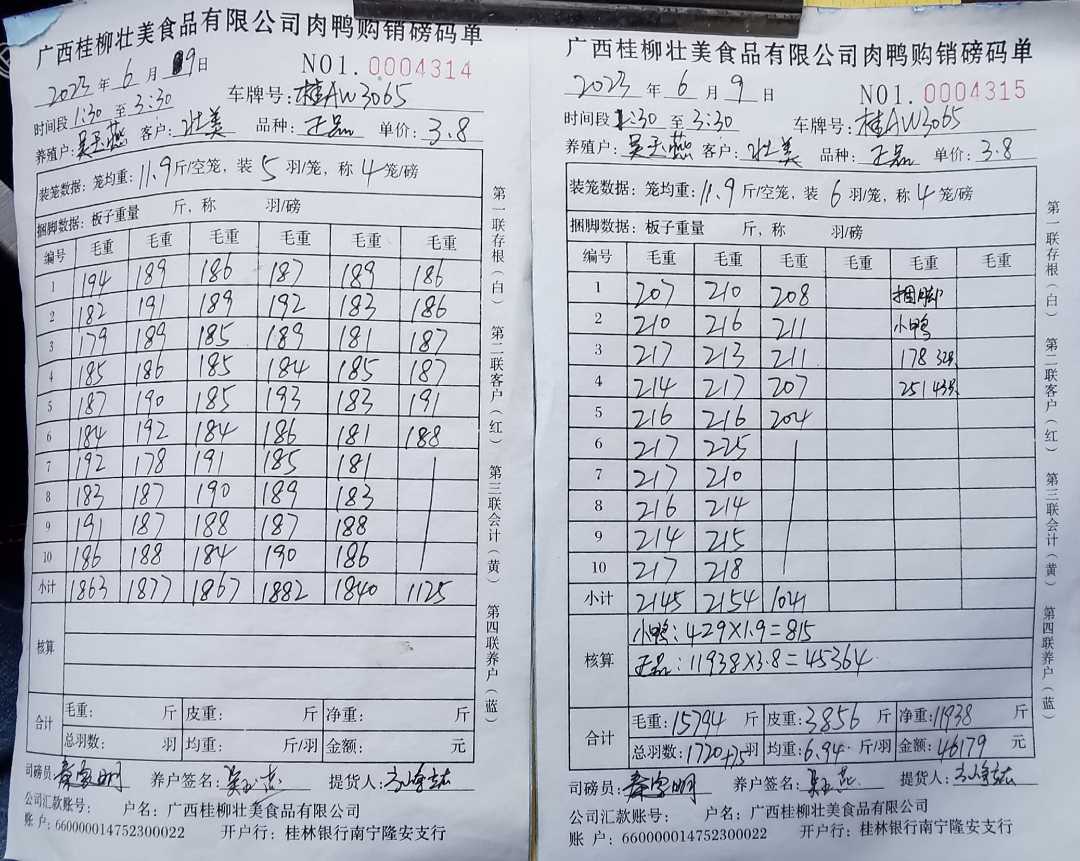 广西桂柳壮美食品有限公司肉鸭购销磅码单
2023年6月9日 NO1.0004314
时间段1:30至3:30 车牌号:桂AW3065
养殖户:吴玉燕 客户:壮美 品种:正品 单价:3.8
装笼数据:笼均重:11.9斤/空笼,装5羽/笼,称4笼/磅
捆脚数据:板子重量 斤,称 羽/磅
编号 毛重 毛重 毛重 毛重 毛重 毛重
1 194 189 186 187 189 186
2 182 191 189 192 183 186
3 179 189 185 189 181 187
4 185 186 185 184 185 187
5 187 190 185 193 183 191
6 184 192 184 186 181 188
7 192 178 191 185 181
8 183 187 190 189 183
9 191 187 188 187 188
10 186 188 184 190 186
小计 1863 1877 1867 1882 1840 1125
核算
合计 毛重: 斤 皮重: 斤 净重: 斤
总羽数: 羽 均重: 斤/羽 金额: 元
司磅员: 养户签名: 提货人:
公司汇款账号: 户名:广西桂柳壮美食品有限公司
账 户:660000014752300022 开户行:桂林银行南宁隆安支行
第一联存根(白) 第二联客户(红) 第三联会计(黄) 第四联养户(蓝)
广西桂柳壮美食品有限公司肉鸭购销磅码单
2023年6月9日 NO1.0004315
时间段1:30至3:30 车牌号:桂AW3065
养殖户:吴玉燕 客户:壮美 品种:正品 单价:3.8
装笼数据:笼均重:11.9斤/空笼,装6羽/笼,称4笼/磅
捆脚数据:板子重量 斤,称 羽/磅
编号 毛重 毛重 毛重 毛重 毛重 毛重
1 207 210 208 捆脚
2 210 216 211 小鸭
3 217 213 211 178 32只
4 214 217 207 251 43只
5 216 216 204
6 217 225
7 217 210
8 216 214
9 214 215
10 217 218
小计 2145 2154 1041
核算 小鸭:429×1.9=815
正品:11938×3.8=45364
合计 毛重:15794斤 皮重:3856斤 净重:11938斤
总羽数:1720+75羽 均重:6.94斤/羽 金额:46179元
司磅员: 养户签名: 提货人:
公司汇款账号: 户名:广西桂柳壮美食品有限公司
账 户:660000014752300022 开户行:桂林银行南宁隆安支行
第一联存根(白) 第二联客户(红) 第三联会计(黄) 第四联养户(蓝)